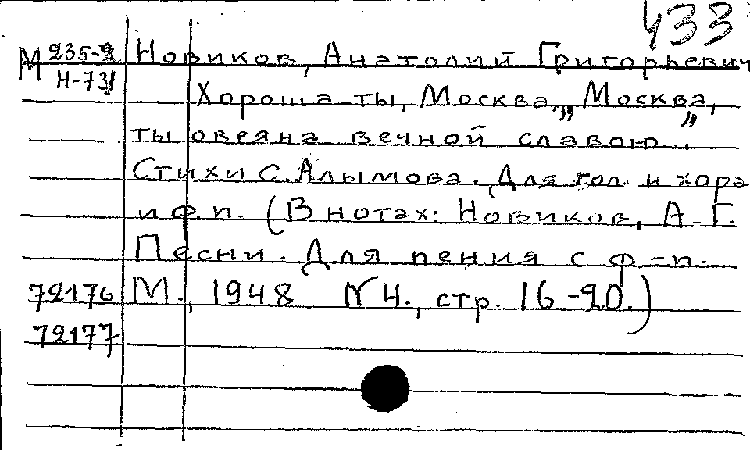 433
М 235-2 Новиков, Анатолий Григорьевич
Н-731
Хороша ты, Москва, „Москва,
ты овеяна вечной славою".
Стихи С. Алымова. Для гол. и хора
и ф.п. (В нотах: Новиков, А. Г.
Песни. Для пения с ф-п.
72176 М., 1948 №4., стр. 16-20.)
72177